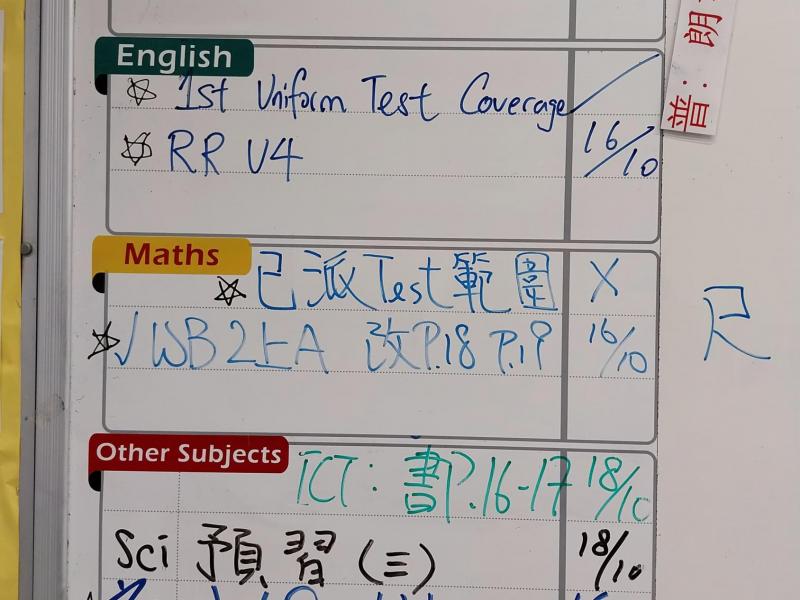 English
☆ 1st Uniform Test Coverage
☆ RR U4 16/10
普：朗
Maths
☆ 已派Test範圍 X
☆ √ WB2上A 改P.18 P.19 16/10
尺
Other Subjects
ICT：書P.16-17 18/10
Sci 預習（三） 18/10